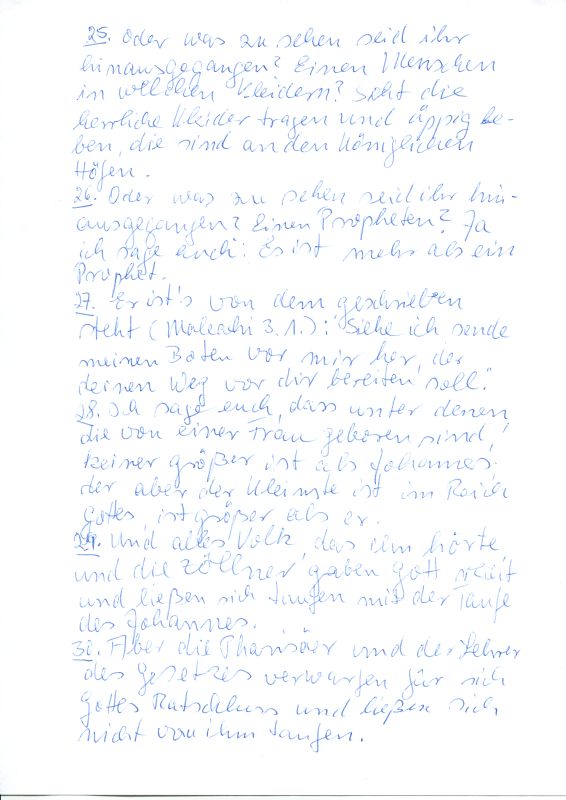 25. Oder was zu sehen seid ihr
hinausgegangen? Einen Menschen
in weichen Kleidern? Seht die
herrliche Kleider tragen und üppig le-
ben, die sind an den königlichen
Höfen.
26. Oder was zu sehen seid ihr hin-
ausgegangen? Einen Propheten? Ja
ich sage euch: Es ist mehr als ein
Prophet.
27. Er ist's von dem geschrieben
steht (Maleachi 3.1.): "Siehe ich sende
meinen Boten vor mir her, der
deinen Weg vor dir bereiten soll."
28. Ich sage euch, dass unter denen
die von einer Frau geboren sind,
keiner größer ist als Johannes.
der aber der Kleinste ist im Reich
Gottes, ist größer als er.
29. Und alles Volk, das ihn hörte,
und die Zöllner, gaben Gott recht
und ließen sich taufen mit der Taufe
des Johannes.
30. Aber die Pharisäer und der Lehrer
des Gesetzes verwarfen für sich
Gottes Ratschluss und ließen sich
nicht von ihm taufen.